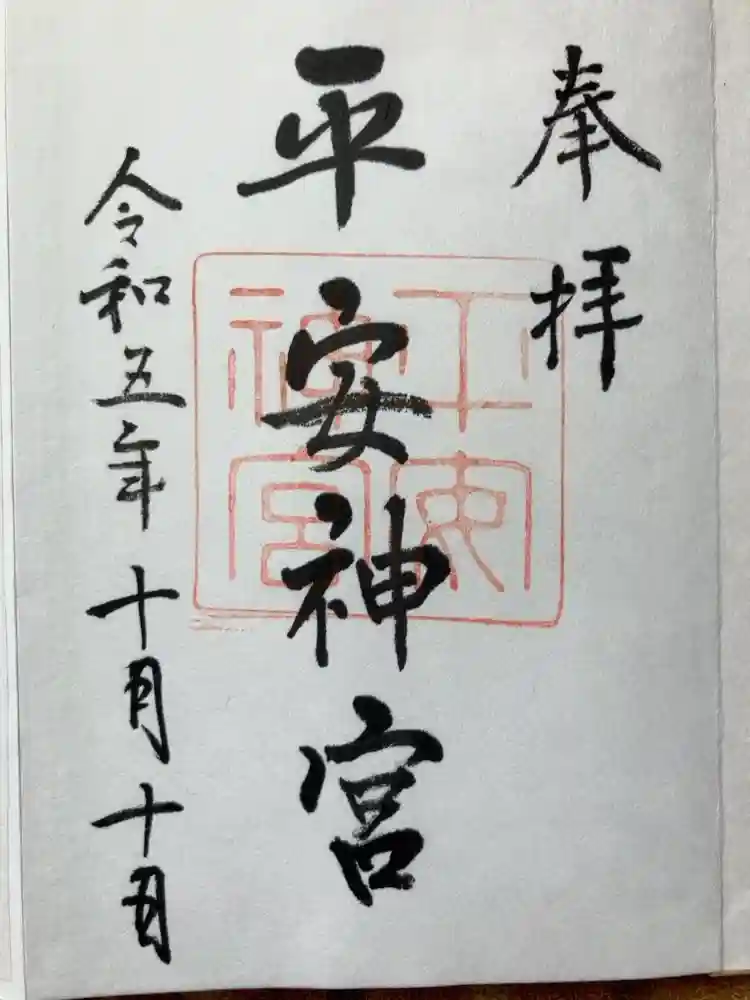 奉拝
平安神宮
平安
神宮
令和五年十月十日